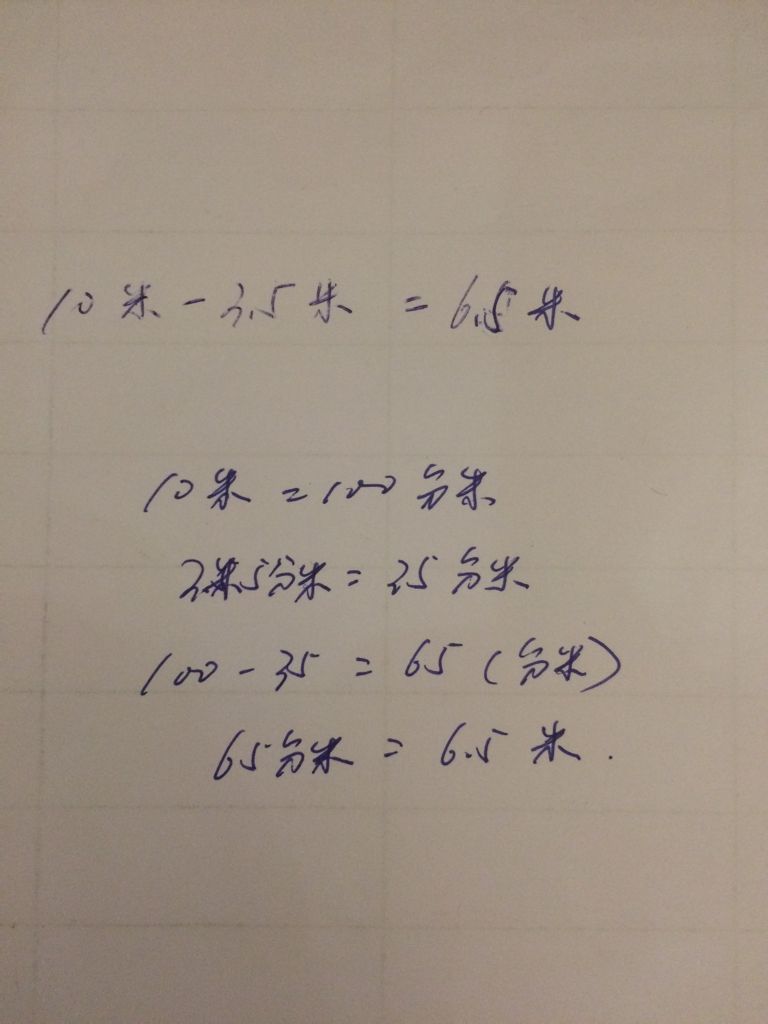 10米-3.5米=6.5米
10米=100分米
3米5分米=35分米
100-35=65(分米)
65分米=6.5米.